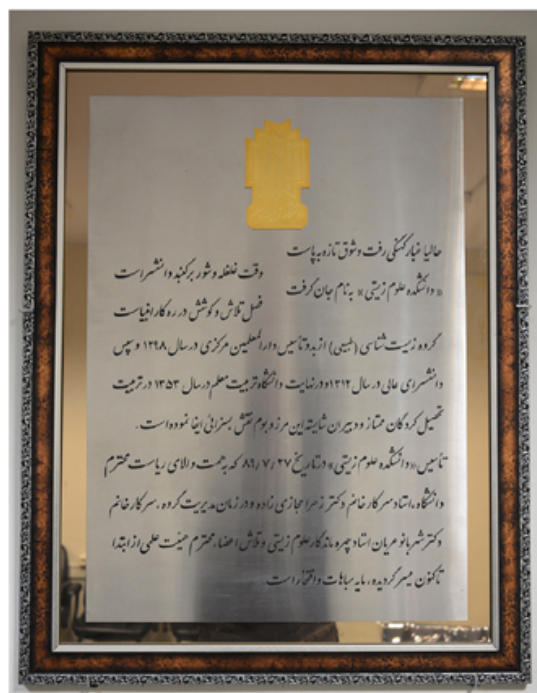 حالیا غبار کهنگی رفت و شوق تازه به پاست
وقت غلغله و شور بر گنبد دانشسراست
« دانشکده علوم زیستی » به نام جان گرفت
فصل تلاش و کوشش در ره کار انبیاست
گروه زیست شناسی (طبیعی) از بدو تأسیس دارالمعلمین مرکزی در سال ۱۲۹۸ و سپس
دانشسرای عالی در سال ۱۳۱۲ و در نهایت دانشگاه تربیت معلم در سال ۱۳۵۳ در تربیت
تحصیل کردگان ممتاز و دبیران شایسته این مرز و بوم نقش بسزائی ایفا نموده است .
تأسیس « دانشکده علوم زیستی » در تاریخ ۸۹/۷/۲۷ که به همت والای ریاست محترم
دانشگاه، استاد سرکار خانم دکتر زهرا حجازی زاده و در زمان مدیریت گروه ، سرکار خانم
دکتر شهربانو عریان استاد چهره ماندگار علوم زیستی و تلاش اعضاء محترم هیئت علمی از ابتدا
تاکنون میسر گردیده ، مایه مباهات و افتخار است.